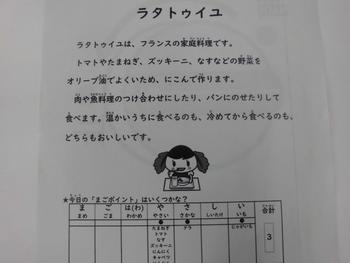 ラタトゥイユ
ラタトゥイユは、フランスの家庭料理です。
トマトやたまねぎ、ズッキーニ、なすなどの野菜を
オリーブ油でよくいため、にこんで作ります。
肉や魚料理のつけ合わせにしたり、パンにのせたりして
食べます。温かいうちに食べるのも、冷めてから食べるのも、
どちらもおいしいです。
★今日の「まごポイント」はいくつかな?
ま ご は(わ) や さ し い 合計
まめ ごま わかめ やさい さかな しいたけ いも
● ● ●
たまねぎ タラ じゃがいも 3
トマト
なす
ズッキーニ
にんにく
キャベツ